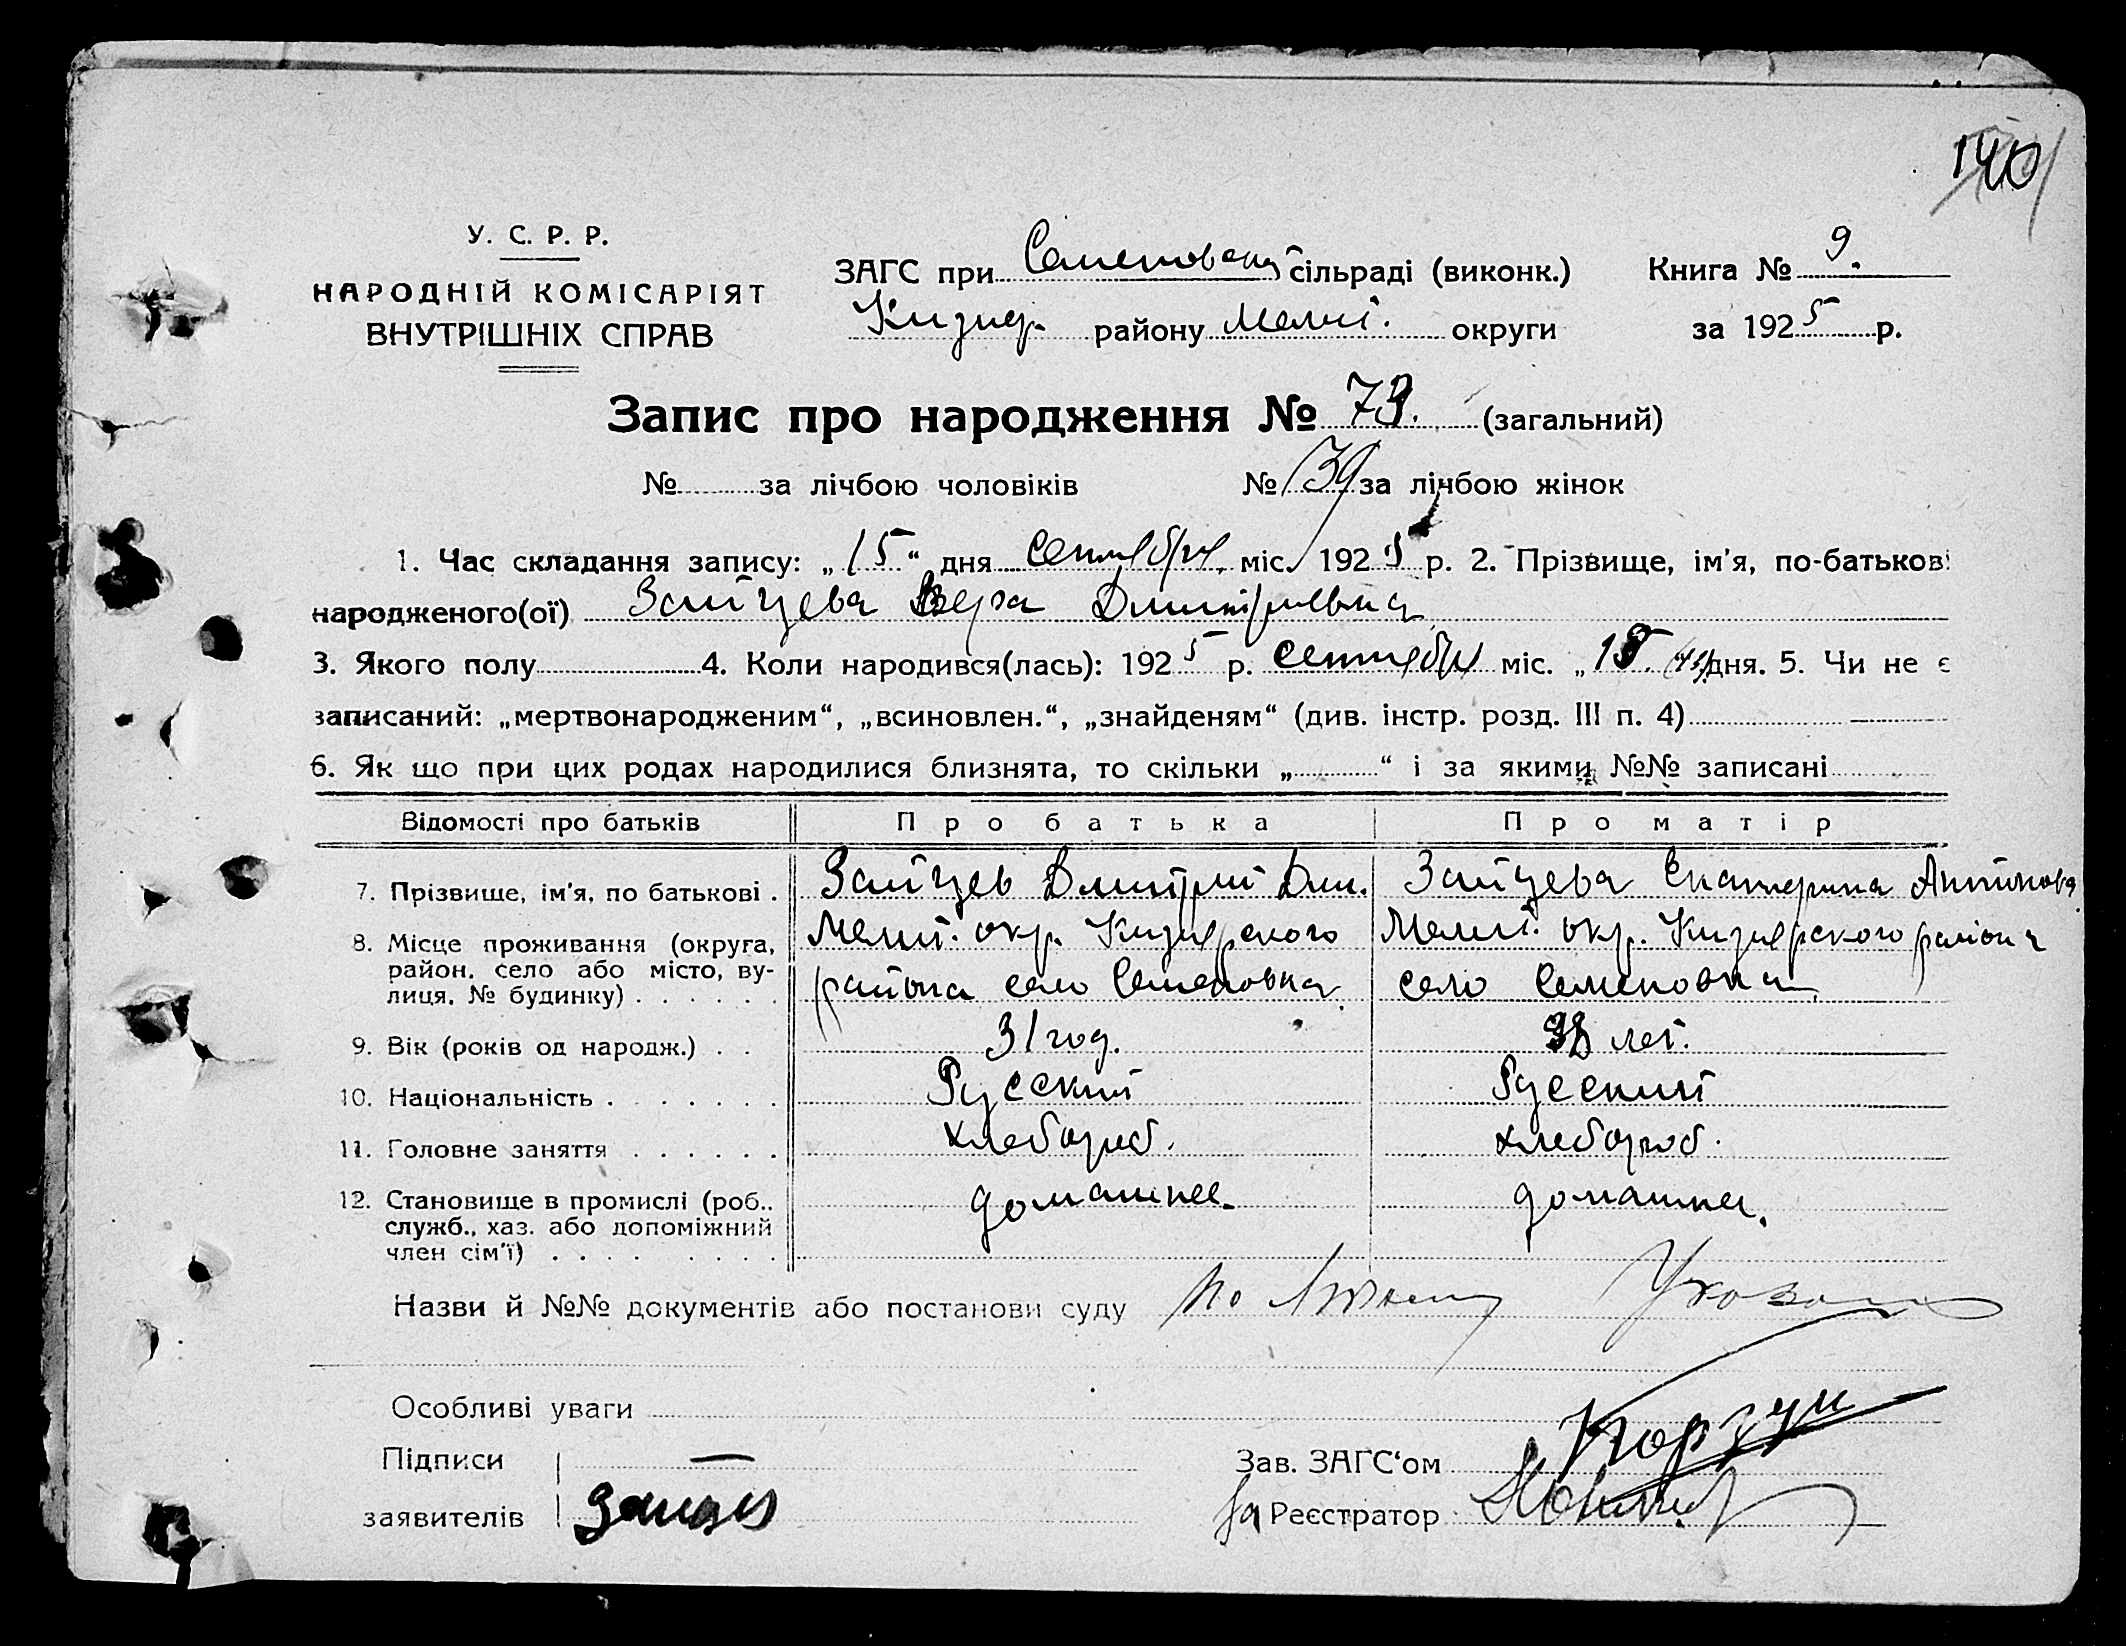 140
У. С. Р. Р.
НАРОДНІЙ КОМІСАРІЯТ
ВНУТРІШНІХ СПРАВ
ЗАГС при Семеновском сільраді (виконк.)
Кизияр. району Мелит. округи
Книга № 9.
за 1925 р.
Запис про народження № 73. (загальний)
№ за лічбою чоловіків № 39 за лічбою жінок
1. Час складання запису: „15“ дня Сентября міс. 1925 р. 2. Прізвище, ім'я, по-батькові
народженого(ої) Зайцева Вера Дмитриевна
3. Якого полу 4. Коли народився(лась): 1925 р. сентября міс. „15. дня. 5. Чи не є
записаний: „мертвонародженим“, „всиновлен.“, „знайденям“ (див. інстр. розд. III п. 4)
6. Як що при цих родах народилися близнята, то скільки „ “ і за якими №№ записані
Відомості про батьків Про батька Про матір
7. Прізвище, ім'я, по батькові . Зайцев Дмитрий Дми. Зайцева Екатерина Антонова
8. Місце проживання (округа, Мелит. окр. Кизиярского Мелит. окр. Кизиярского района
район, село або місто, ву- района село Семеновка село Семеновка
лиця, № будинку)
9. Вік (років од народж.) 31 год. 38 лет.
10. Національність Русский Русский
11. Головне заняття хлебороб. хлебороб.
12. Становище в промислі (роб., домашнее домашнее
служб., хаз. або допоміжний
член сім'ї)
Назви й №№ документів або постанови суду по
Особливі уваги
Підписи
заявителів Зайцев
Зав. ЗАГС'ом Корзун
за Реєстратор